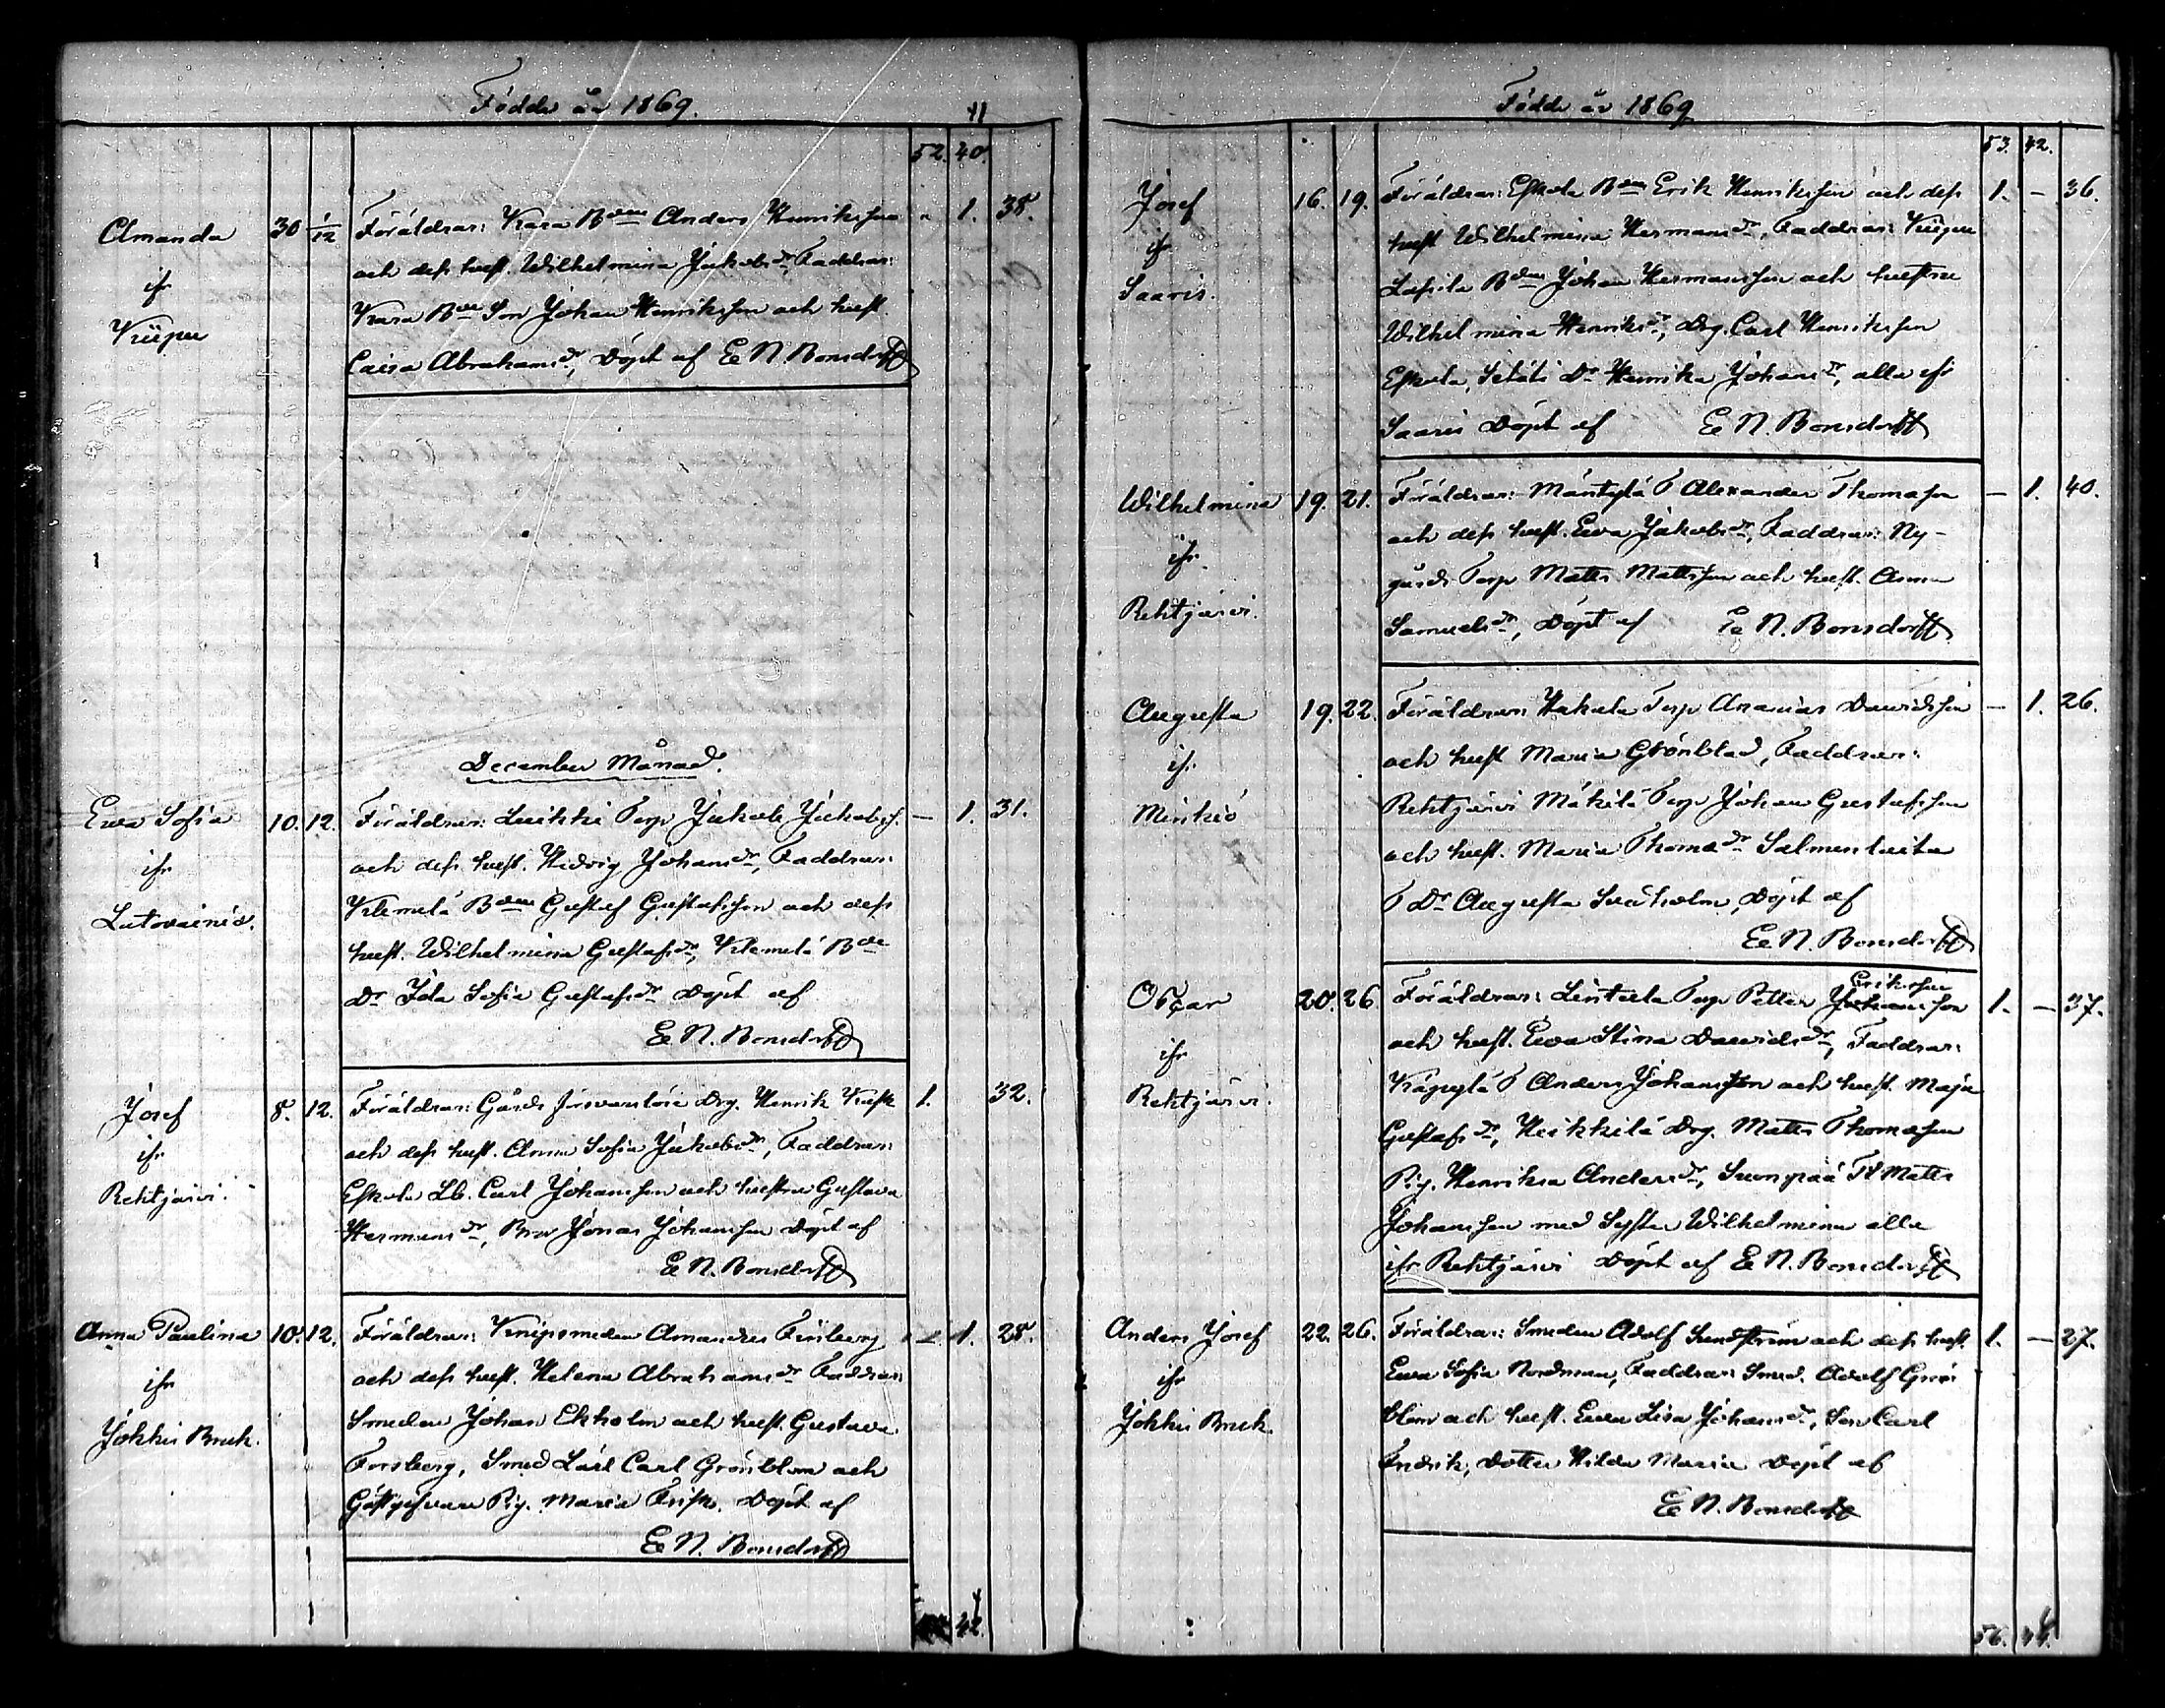 Födde år 1869.
41
52. 40.
Amanda
ifr
Kiipu
30 1/12
Föräldrar: Kara Bden Anders Henriksson
och dess hust. Wilhelmina Jakobsdr, Faddrar:
Kara Bde Son Johan Henriksson och hust.
Caisa Abrahamsdr, Döpt af E N Bonsdorff
" 1. 38.
December Månad.
Ewa Sofia
ifr
Latovainio.
10. 12.
Föräldrar: Luikki Torp Jakob Jakobss.
och dess hust. Hedvig Johansdr, Faddrar:
Klemelä Bden Gustaf Gustafsson och dess
hust. Wilhelmina Gustafsdr, Klemelä Bde
Dr Ida Sofia Gustafsdr Döpt af
E N. Bonsdorff
— 1. 31.
Josef
ifr
Rehtjärvi.
8. 12.
Föräldrar: Gårds försvarslöse Drg. Henrik Kask
och dess hust. Anna Sofia Jakobsdr, Faddrar:
Eskola Lb. Carl Johansson och hustru Gustava
Hermansdr, Bror Jonas Johansson Döpt af
E N. Bonsdorff
1. 32.
Anna Paulina
ifr
Jokkis Bruk.
10. 12.
Föräldrar: Knipsmeden Amandus Finberg
och dess hust. Helena Abrahamsdr Faddrar:
Smeden Johan Ekholm och hust. Gustava
Forsberg, Smed Lärl Carl Grönblom och
Gästgifvare Pig. Maria Frisk. Döpt af
E N. Bonsdorff
— 1. 28.
42.
Födde år 1869
53. 42.
Josef
ifr
Saaris.
16. 19.
Föräldrar: Eskola Bden Erik Henriksson och dess
hust Wilhelmina Hermansdr, Faddrar: Kiipu
Lassila Bden Johan Hermansson och hustru
Wilhelmina Henriksdr, Drg. Carl Henriksson
Eskola, Setäti Dr Henrika Johansdr, alla ifr
Saaris Döpt af E N. Bonsdorff
1. — 36.
Wilhelmina
ifr
Rehtjärvi.
19. 21.
Föräldrar: Mäntylä T Alexander Thomasson
och dess hust. Ewa Jakobsdr, Faddrar: Ny-
gårds Torp Matts Mattsson och hust. Anna
Samuelsdr, Döpt af E N. Bonsdorff
— 1. 40.
Augusta
ifr
Minkiö
19. 22.
Föräldrar: Hakala Torp Ananias Davidsson
och hust Maria Grönblad, Faddrar:
Rehtjärvi Mäkilä Torp Johan Gustafsson
och hust. Maria Thomasdr Salmenluita
T Dr Augusta Sveiholm, Döpt af
E N. Bonsdorff
— 1. 26.
Oscar
ifr
Rehtjärvi.
20. 26.
Eriksson
Föräldrar: Lintula Torp Petter Johansson
och hust. Ewa Stina Davidsdr, Faddrar:
Käpylä T Anders Johansson och hust. Maja
Gustafsdr, Heikkilä Drg. Matts Thomasson
Pig. Henrika Andersdr, Suonpää TS Matts
Johansson med Syster Wilhelmina alla
ifr Rehtjärvi Döpt af E N. Bonsdorff
1. — 37.
Anders Josef
ifr
Jokkis Bruk.
22. 26.
Föräldrar: Smeden Adolf Sundström och dess hust.
Ewa Sofia Nordman, Faddrar: Smed. Adolf Grön
blom och hust. Ewa Lisa Johansdr, Son Carl
Fredrik, Dotter Hilda Maria Döpt af
E N. Bonsdorff
1. — 27.
56. 44.